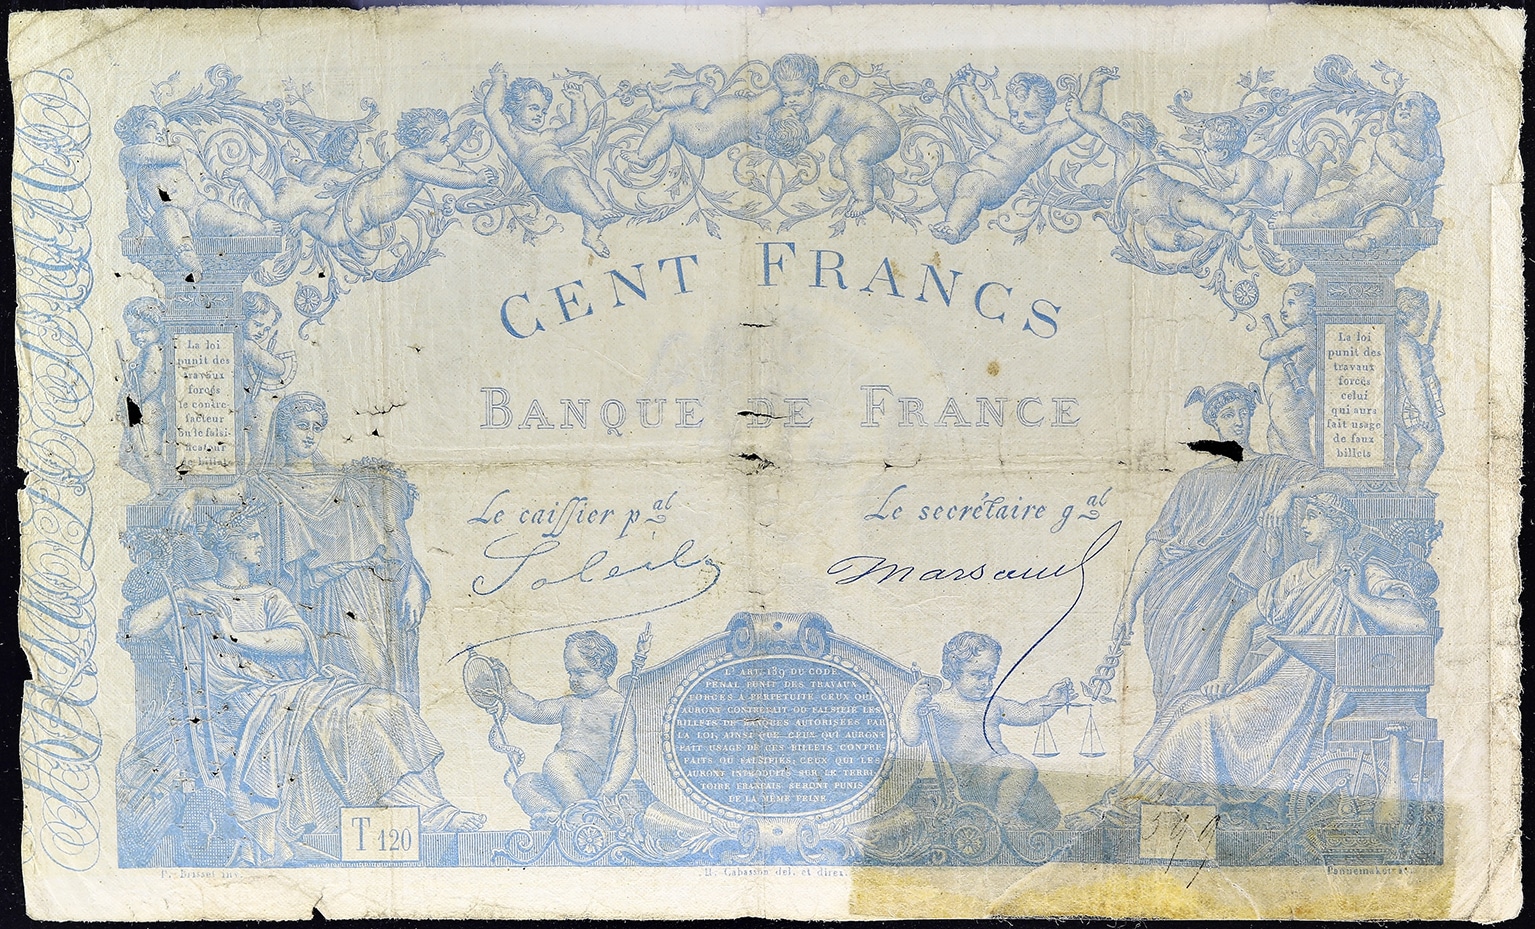 CENT FRANCS
BANQUE DE FRANCE
La loi
punit des
travaux
forcés
le contre-
facteur
ou le falsi-
ficateur
de billets
La loi
punit des
travaux
forcés
celui
qui aura
fait usage
de faux
billets
Le caissier pal
Le secrétaire gal
Soleil
Marsaud
L'ART. 139 DU CODE
PENAL PUNIT DES TRAVAUX
FORCES A PERPETUITE CEUX QUI
AURONT CONTREFAIT OU FALSIFIE LES
BILLETS DE BANQUES AUTORISEES PAR
LA LOI, AINSI QUE CEUX QUI AURONT
FAIT USAGE DE CES BILLETS CONTRE-
FAITS OU FALSIFIES; CEUX QUI LES
AURONT INTRODUITS SUR LE TERRI-
TOIRE FRANCAIS SERONT PUNIS
DE LA MÊME PEINE.
T 120
599
P. Brisset inv.
H. Cabasson del. et direx.
Pannemaker